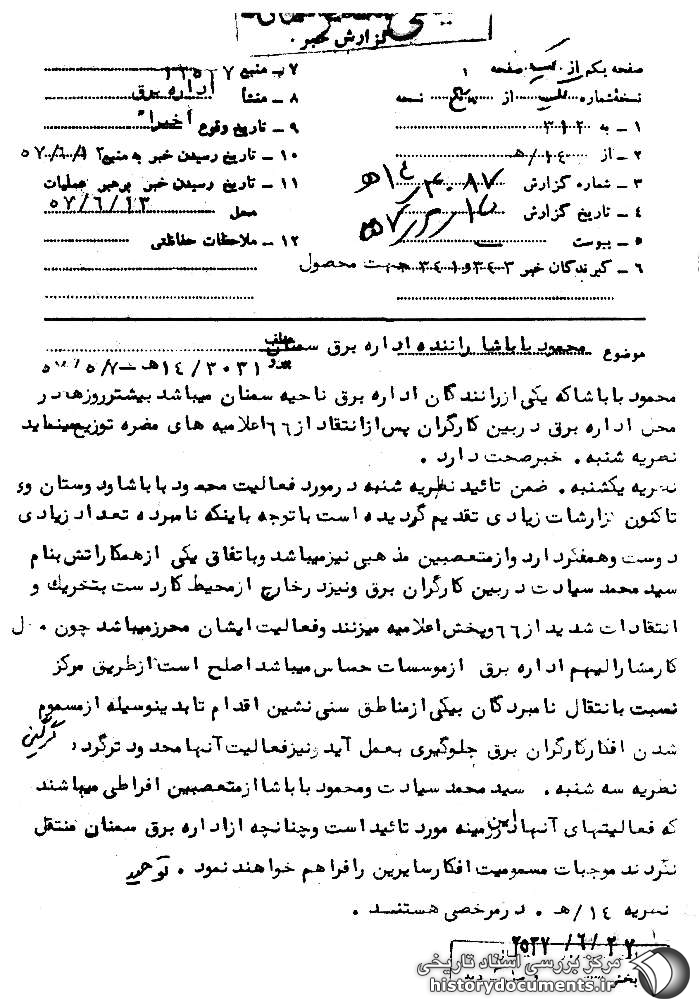 گزارش خبر
صفحه یکم از یک صفحه
نسخه شماره یک از پنج نسخه
۱ ـ به ۳۱۲
۲ ـ از ۱۴/هـ
۳ ـ شماره گزارش
۴ ـ تاریخ گزارش
۵ ـ پیوست
۶ ـ گیرندگان خبر ۳۴۳ و ۳۴۱ جهت محصول
۷ ـ منبع
۸ ـ منشأ اداره برق
۹ ـ تاریخ وقوع اخیراً
۱۰ ـ تاریخ رسیدن خبر به منبع ۵۷/۶/۱۲
۱۱ ـ تاریخ رسیدن خبر برهبر عملیات
محل ۵۷/۶/۱۳
۱۲ ـ ملاحظات حفاظتی
موضوع محمود باباشا راننده اداره برق سمنان
محمود باباشا که یکی از رانندگان اداره برق ناحیه سمنان میباشد بیشتر روزها در
محل اداره برق در بین کارگران پس از انتقاد از ۶۶ اعلامیه های مضره توزیع مینماید
نظریه شنبه . خبر صحت دارد .
نظریه یکشنبه . ضمن تائید نظریه شنبه در مورد فعالیت محمود باباشا و دوستان وی
تاکنون گزارشات زیادی تقدیم گردیده است با توجه باینکه نامبرده تعداد زیادی
دوست و همفکر دارد و از متعصبین مذهبی نیز میباشد و باتفاق یکی از همکارانش بنام
سید محمد سیادت در بین کارگران برق و نیز در خارج از محیط کار دست بتحریك و
انتقادات شدید از ۶۶ و پخش اعلامیه میزنند و فعالیت ایشان محرز میباشد چون
کار مشارالیهم اداره برق از موسسات حساس میباشد اصلح است از طریق مرکز
نسبت بانتقال نامبردگان بیکی از مناطق سنی نشین اقدام تا بدینوسیله از مسموم
شدن افکار کارگران برق جلوگیری بعمل آید و نیز فعالیت آنها محدود تر گردد
نظریه سه شنبه . سید محمد سیادت و محمود باباشا از متعصبین افراطی میباشند
که فعالیتهای آنها در این زمینه مورد تائید است و چنانچه از اداره برق سمنان منتقل
نگردند موجبات مسمومیت افکار سایرین را فراهم خواهند نمود .
نظریه ۱۴/هـ . در مرخصی هستند .
۲۵۳۷/۶/۲۷
مرکز بررسی اسناد تاریخی
historydocuments.ir